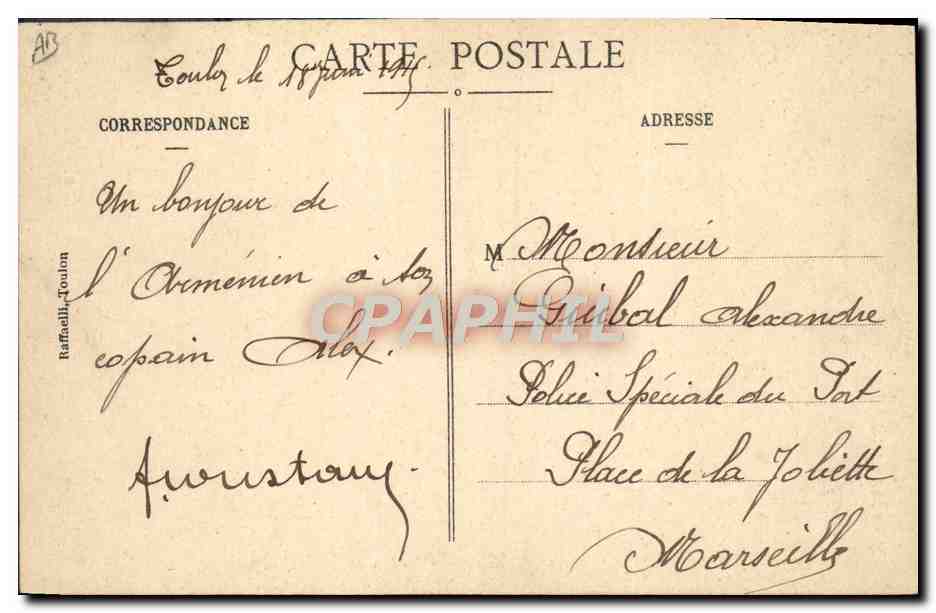 AB
CARTE POSTALE
Toulon le 18 juin 1915
CORRESPONDANCE
ADRESSE
Un bonjour de
l'Arménien à son
copain Alex.
M Monsieur
Guibal Alexandre
Police Spéciale du Port
Place de la Joliette
Marseille
Raffaelli, Toulon
CPAPHIL